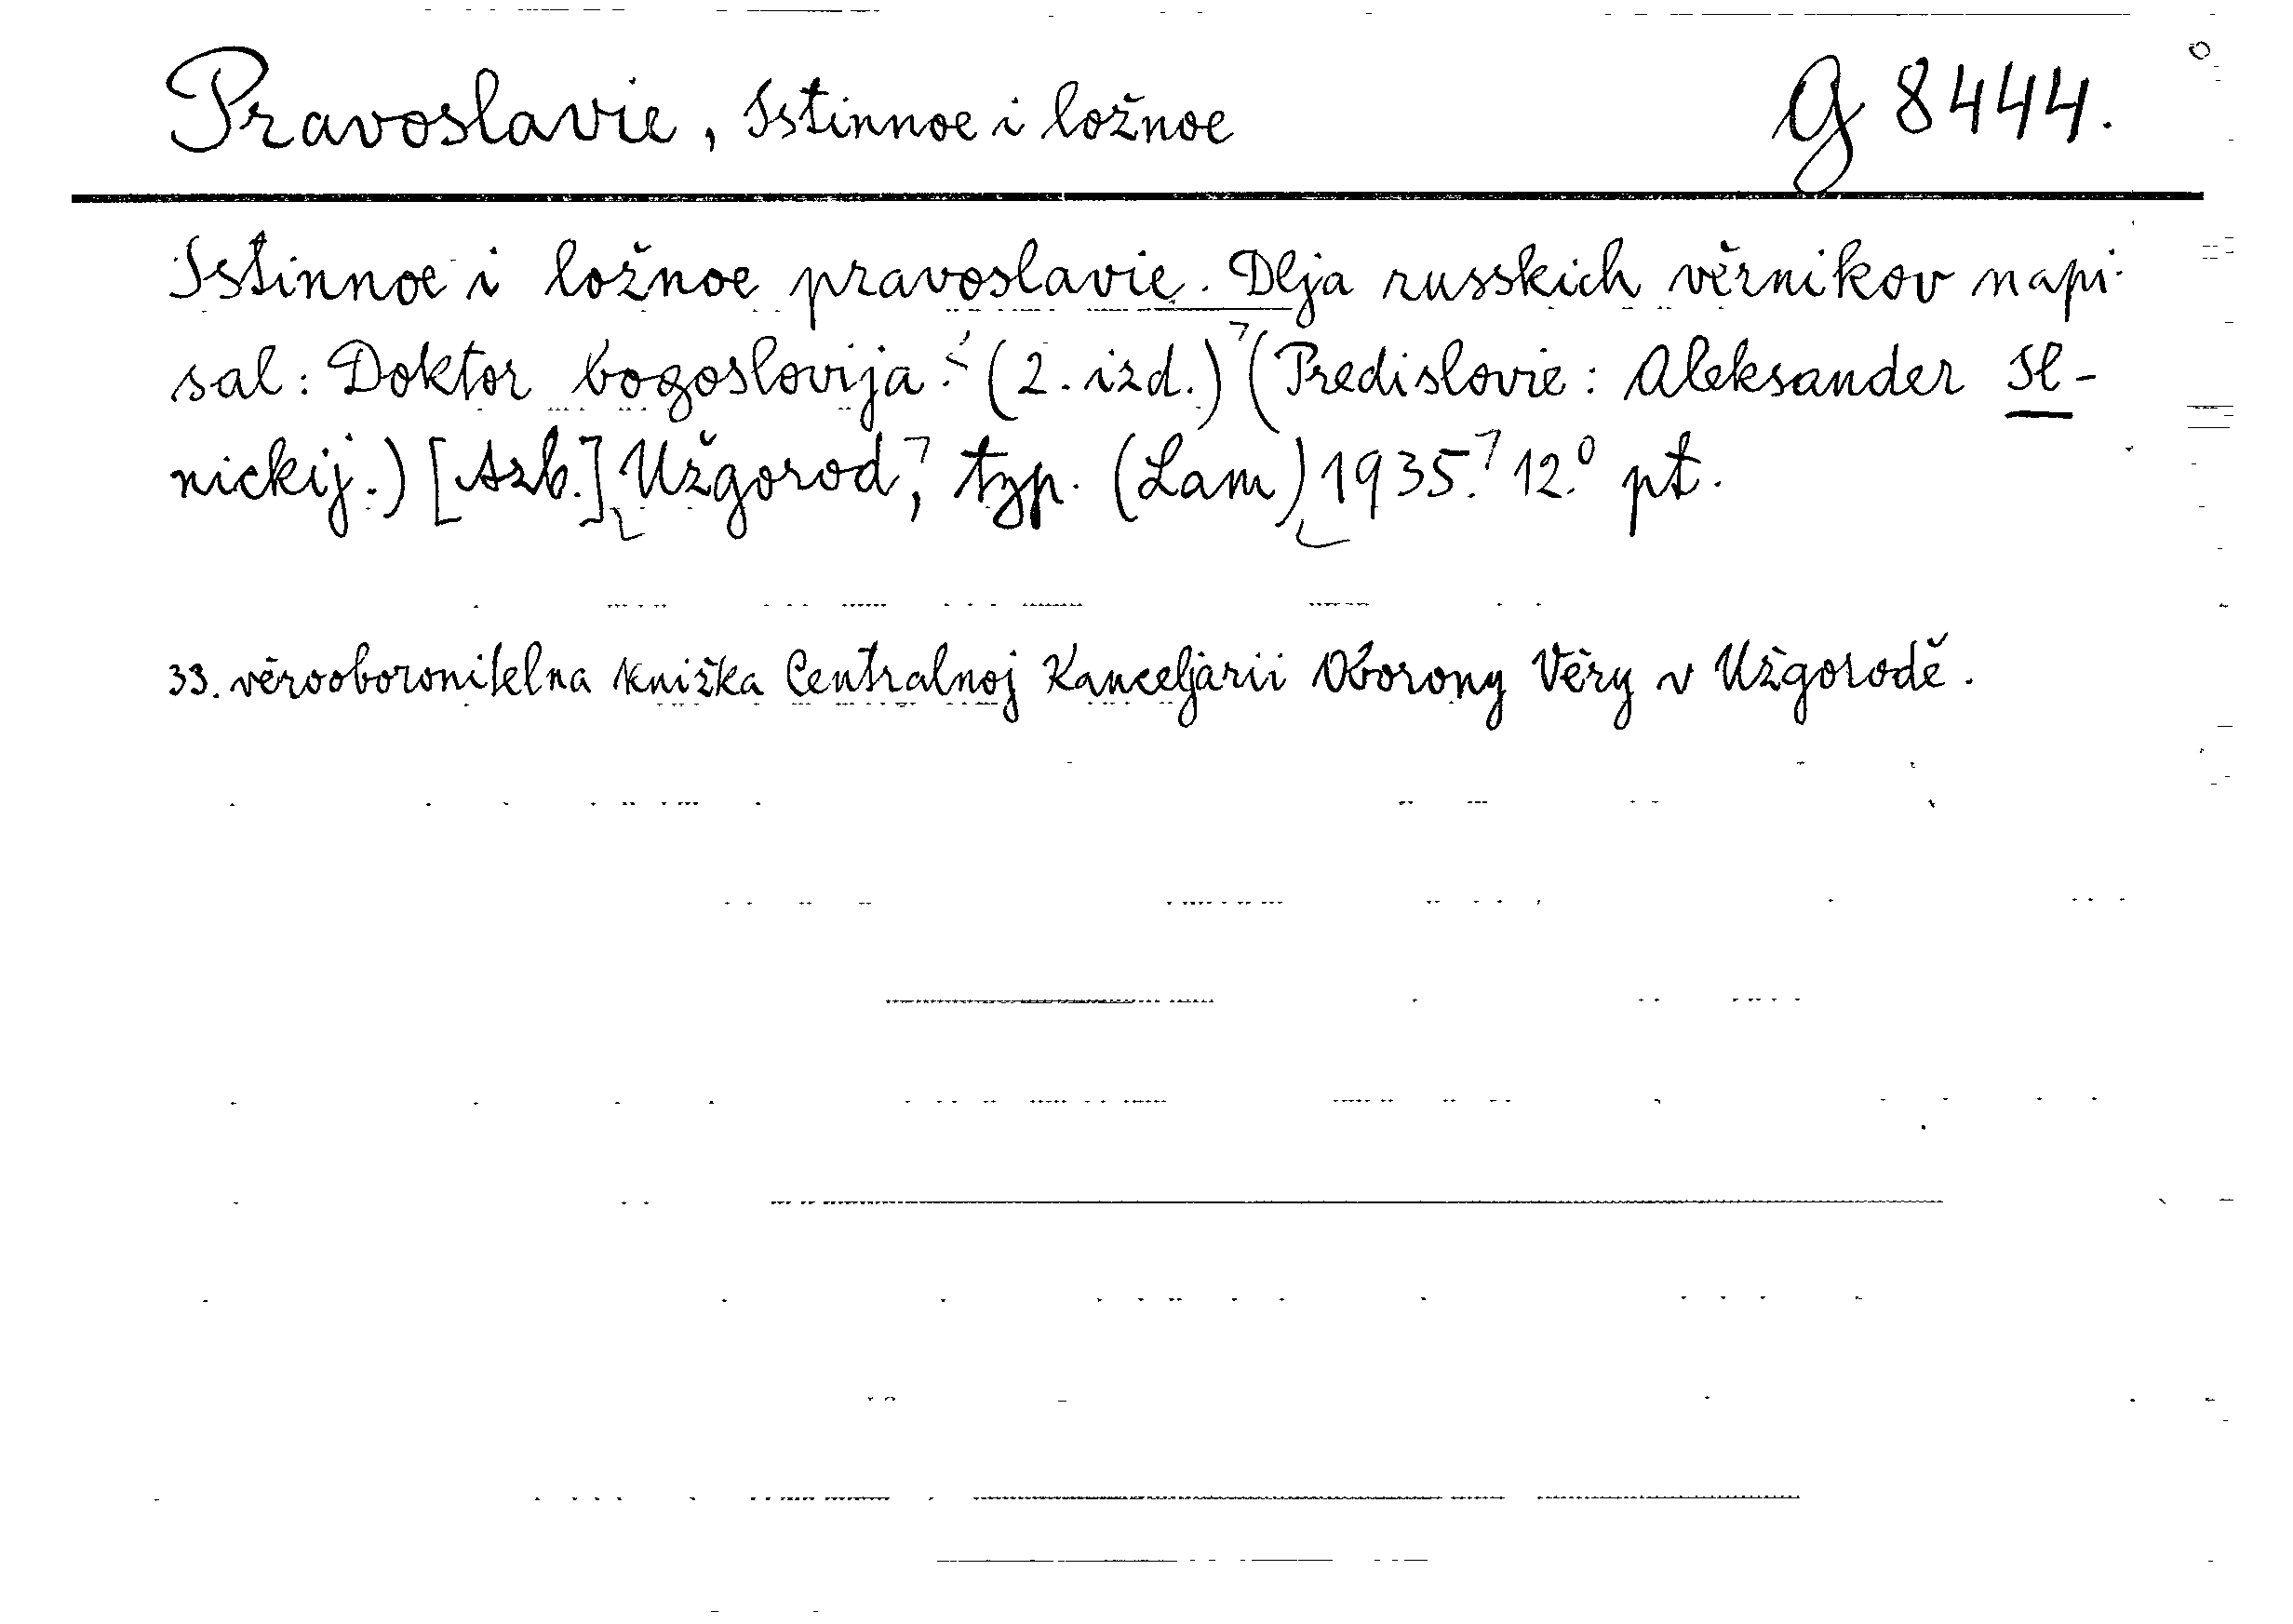 Pravoslavie, Istinnoe i ložnoe G 8444.
Istinnoe i ložnoe pravoslavie. Dlja russkich věrnikov napi-
sal: Doktor bogoslovija. (2. izd.) (Predislovie: Aleksander Il-
nickij.) [Azb.] Užgorod, typ. (Lam) 1935. 12.° pt.
33. věrooboronitelna knižka Centralnoj Kanceljarii Oborony Věry v Užgorodě.